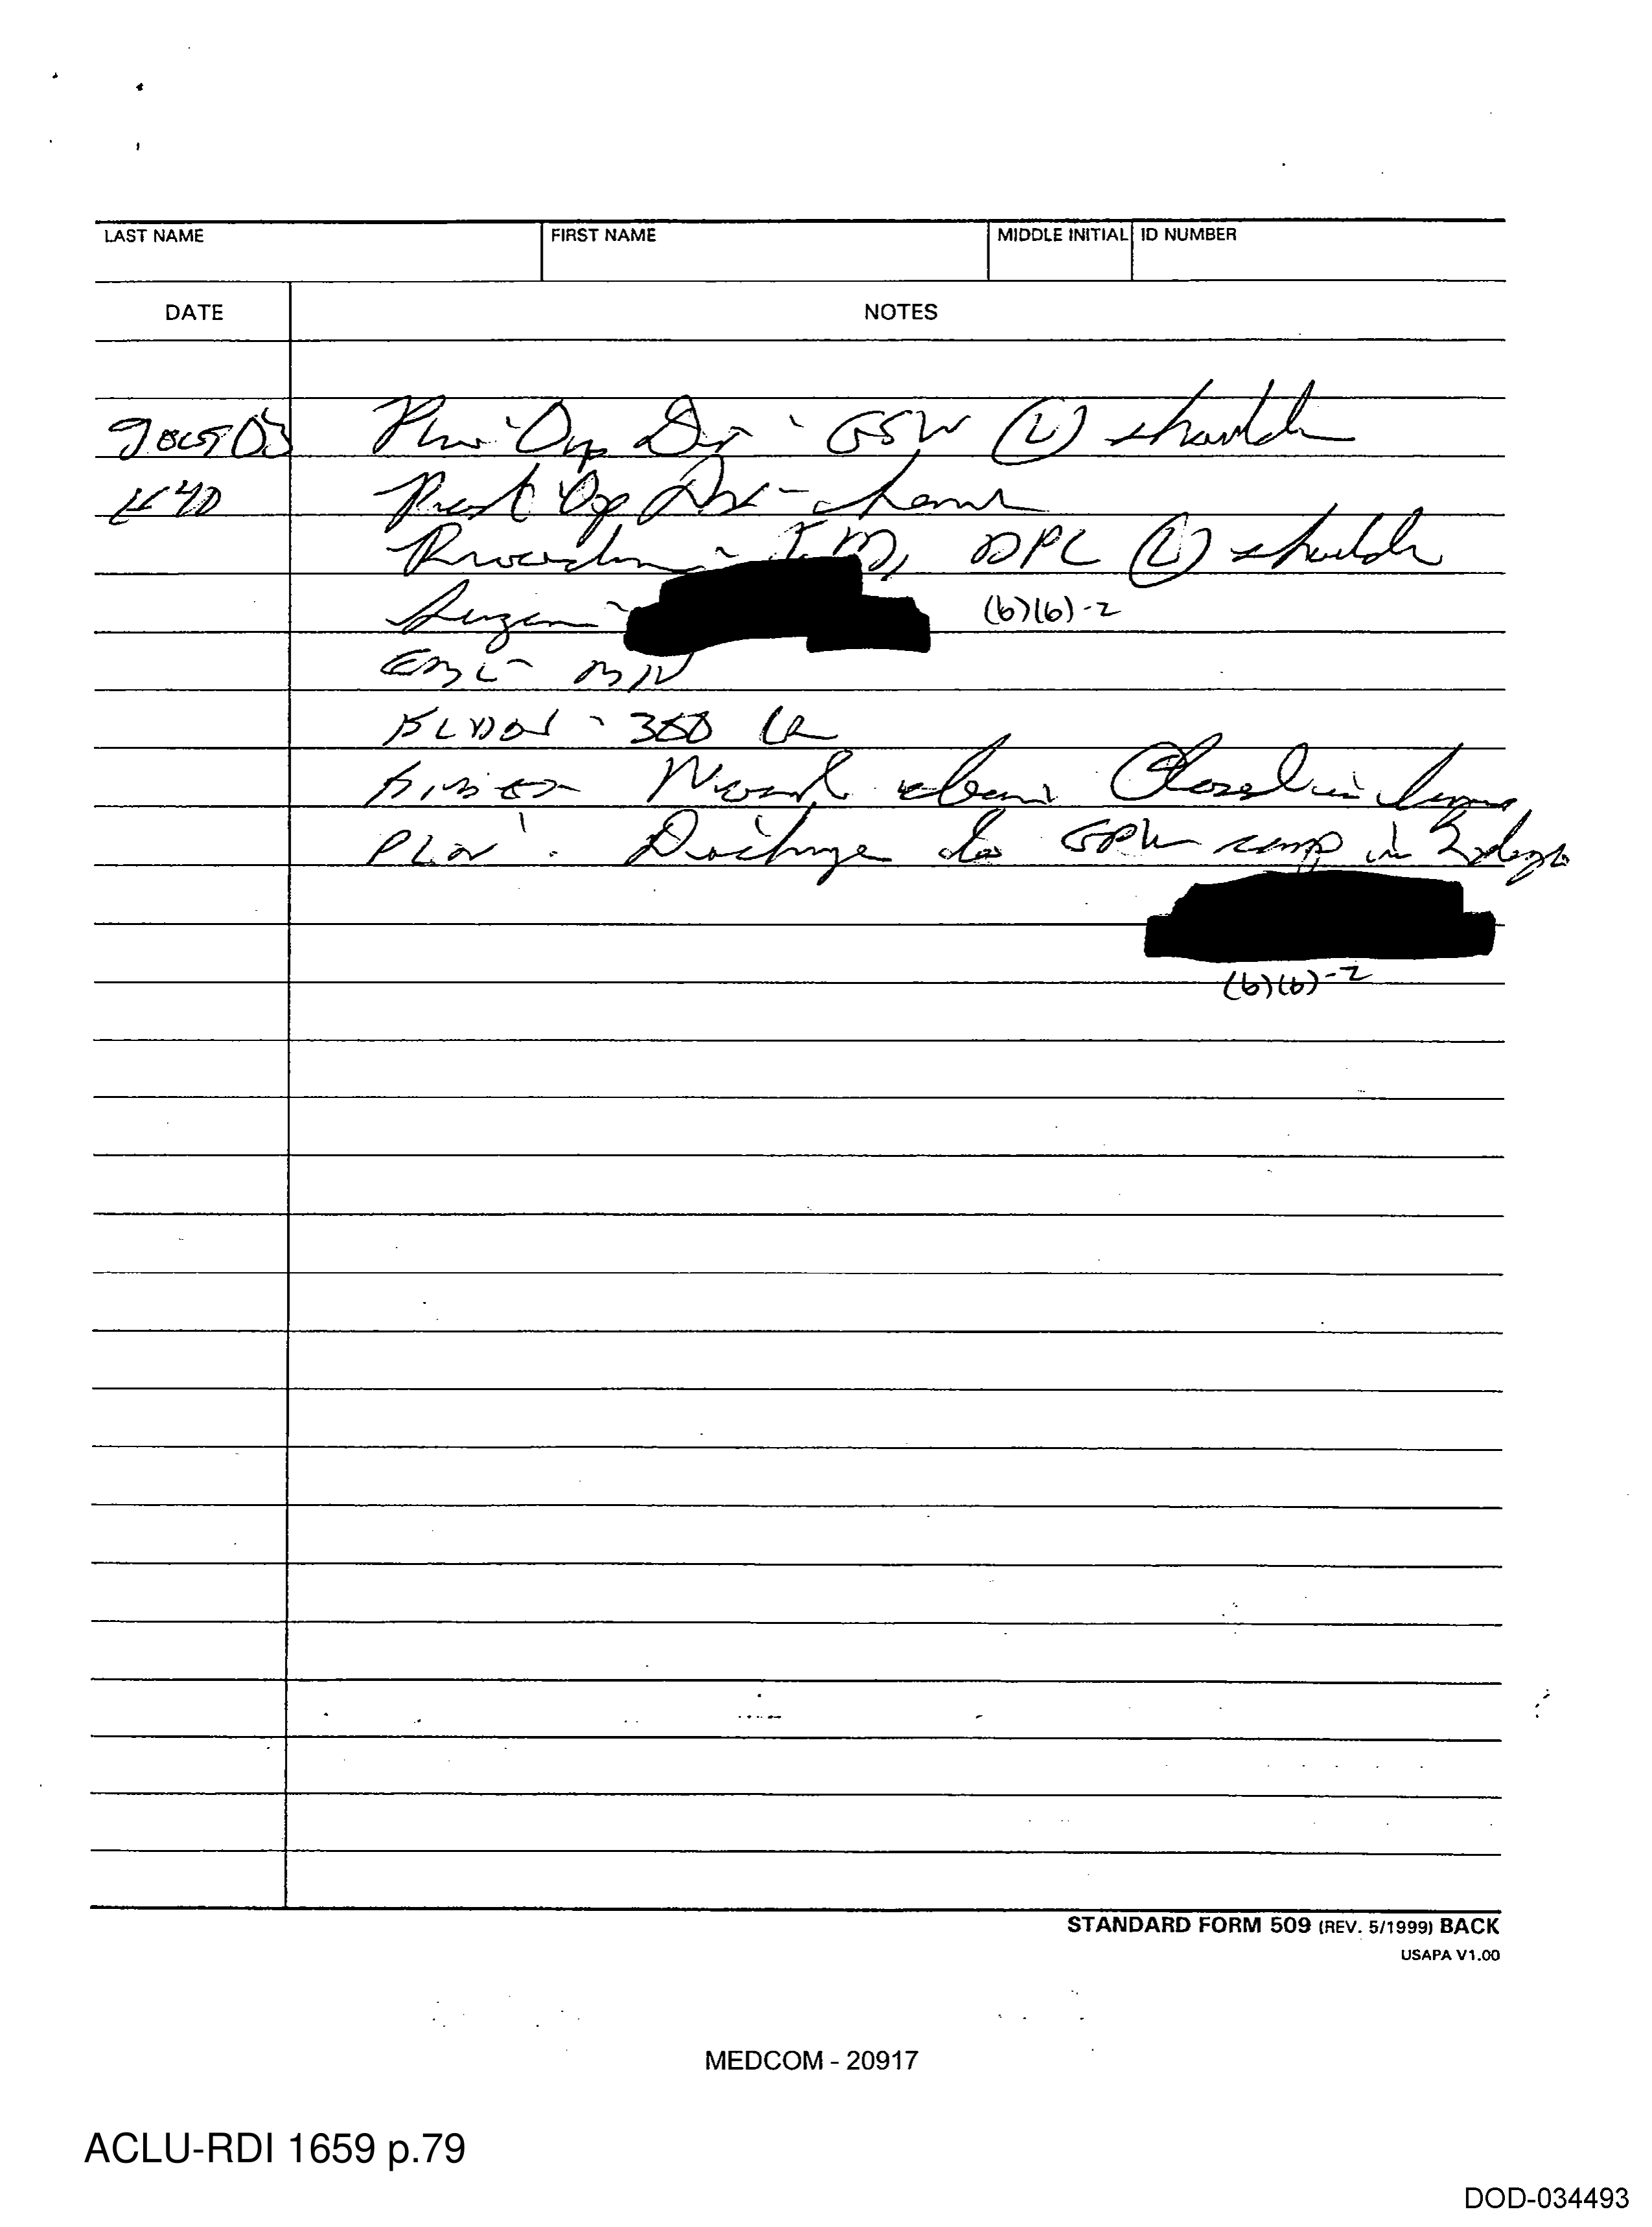 LAST NAME FIRST NAME MIDDLE INITIAL ID NUMBER
DATE NOTES
9 Oct 03 Pre Op Dx - GSW (L) shoulder
Post Op Dx - same
Procedure - I + D, DPC (L) shoulder
Surgeon - (b)(6)-2
EBL - min
Fluids - 300 LR
Findings Wound clean. Closed in layers
Plan: Discharge to EPW camp in 2 days
(b)(6)-2
STANDARD FORM 509 (REV. 5/1999) BACK
USAPA V1.00
MEDCOM - 20917
ACLU-RDI 1659 p.79
DOD-034493